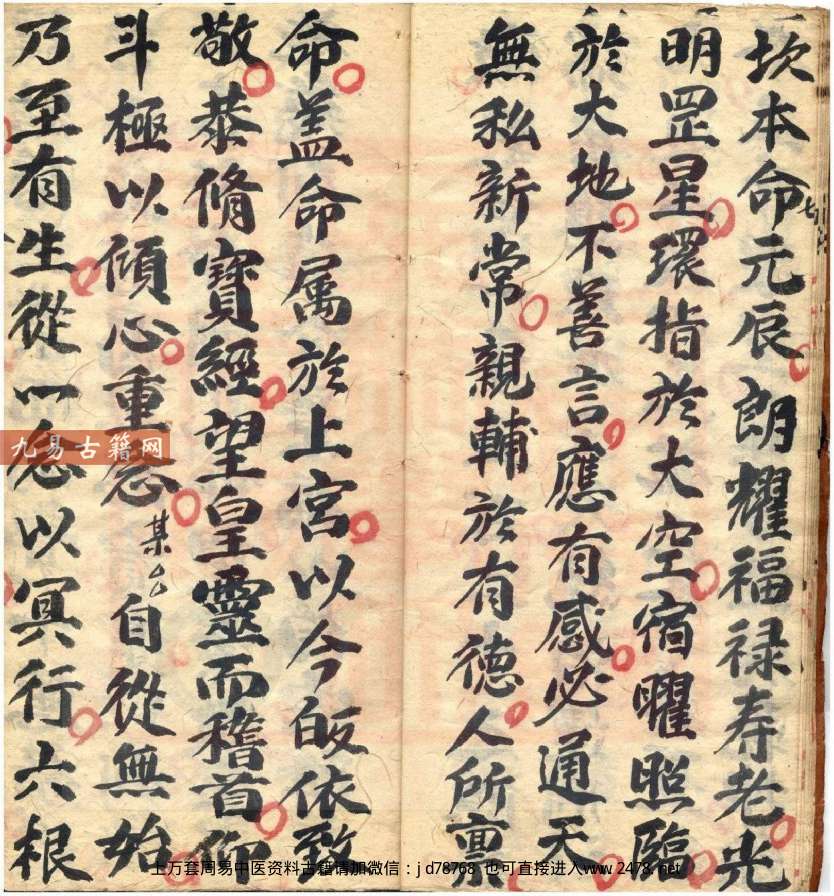 坎本命元辰朗耀福禄寿老光
明罡星環指於大空宿曜照臨
於大地不善言應有感必通天
無私新常親輔於有德人所禀
命盖命属於上宮以今皈依致
敬恭脩寳經望皇靈而稽首仰
斗極以傾心重念某厶自從無始
乃至有生從一念以冥行六根
九易古籍网
上万套周易中医资料古籍请加微信:jd78768 也可直接进入www.2478.net